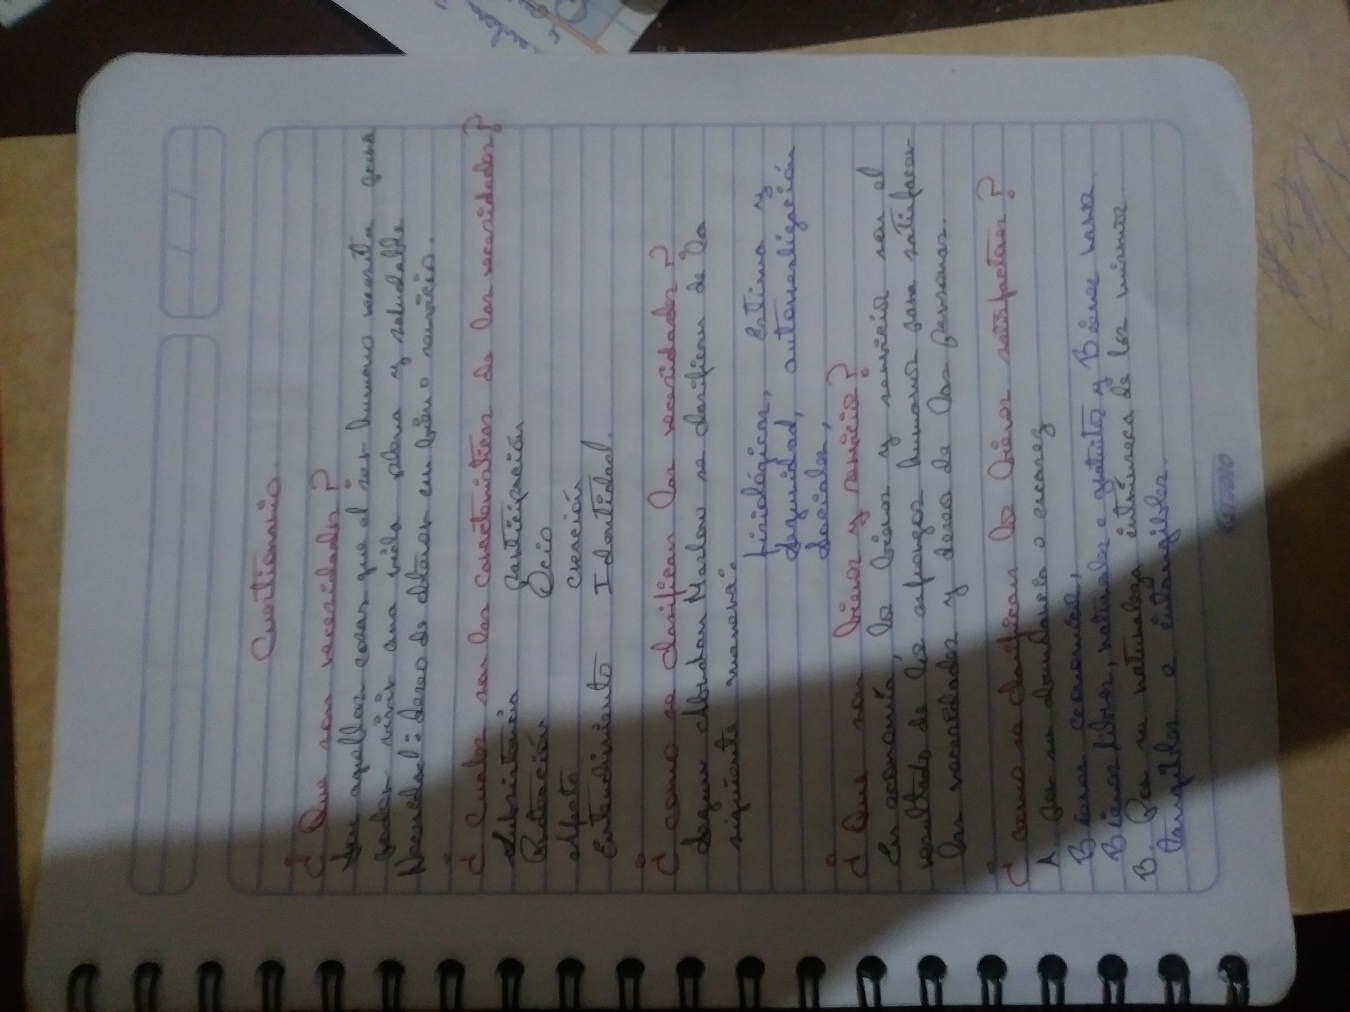 Cuestionario
¿Que son necesidades?
Son aquellas cosas que el ser humano necesita para
poder vivir una vida plena y saludable
Necesidad: deseo de obtener un bien o servicio.
¿Cuales son las caracteristicas de las necesidades?
Subsistencia participación
Protección Ocio
Afecto creación
Entendimiento Identidad.
¿como se clasifican las necesidades?
Segun Abraham Maslow se clasifican de la
siguiente manera:
fisiológicas, Estima y
Seguridad, autorrealización
Sociales,
¿Que son bienes y servicio?
En economía, lo bienes y servicios son el
resultado de los esfuerzos humanos para satisfacer
las necesidades y deseo de las personas.
¿como se clasifican lo bienes satisfactores?
A por su abundancia o escasez
Bienes economico,
Bienes libres, naturales o gratuitos y Bienes
B. Por su naturaleza intrínseca de los mismos
Tangibles o intangibles.